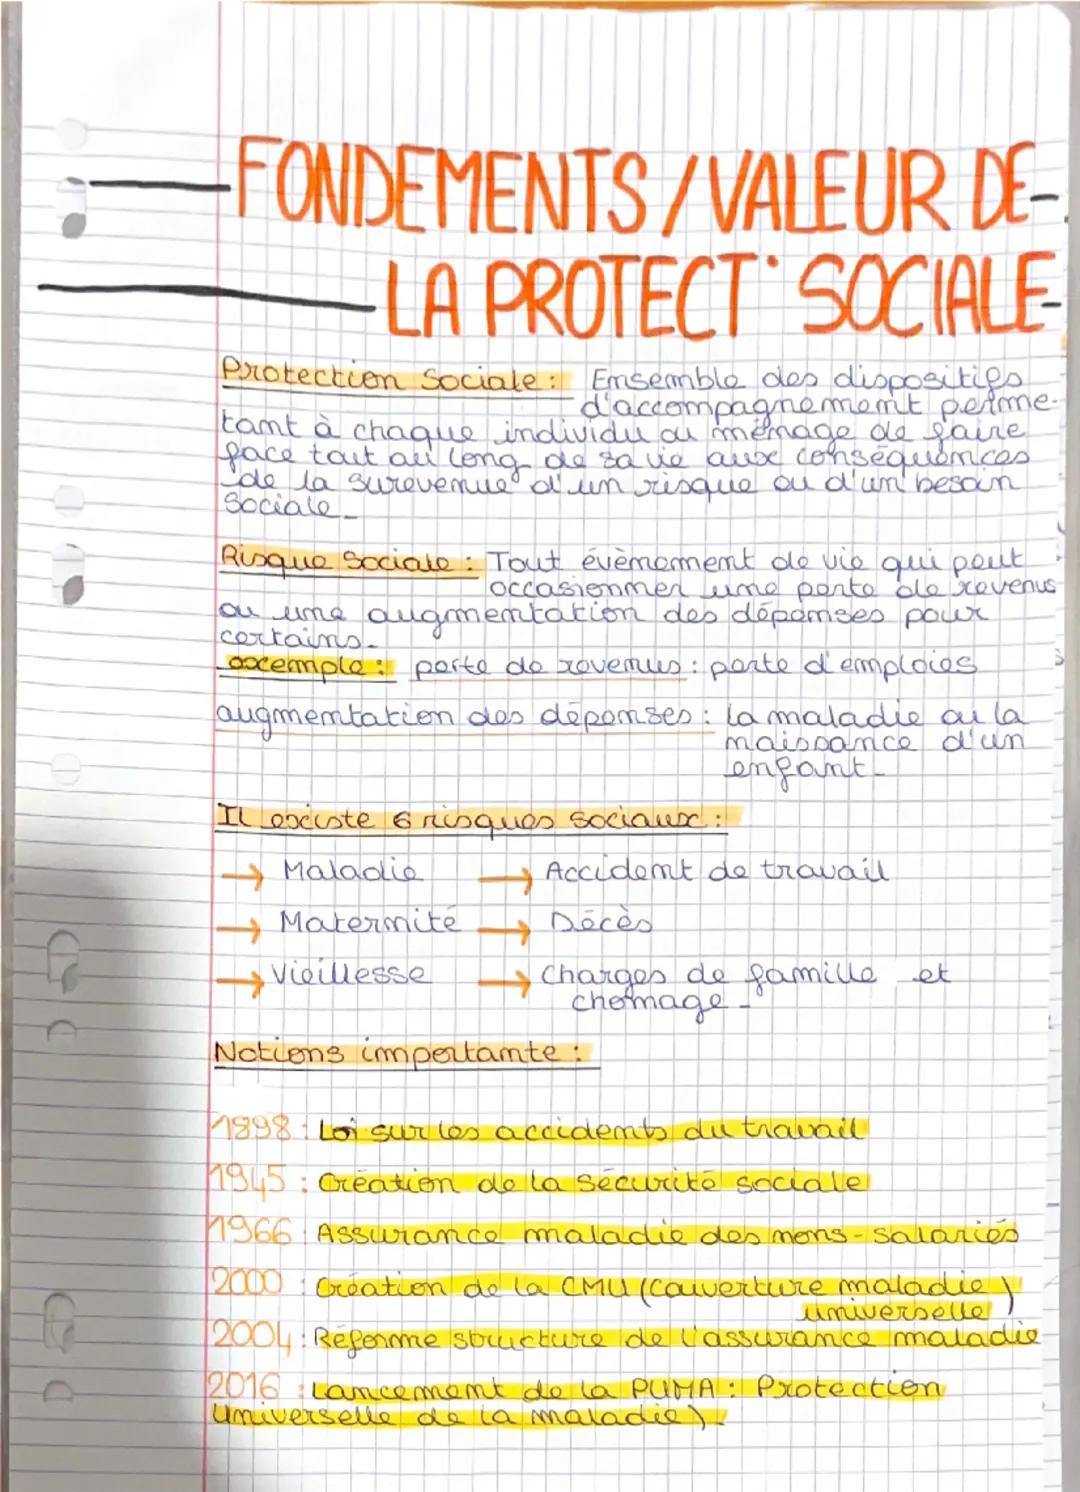 FONDEMENTS/VALEUR DE
LA PROTECT° SOCIALE
Protection Sociale : Ensemble des dispositifs
d'accompagnement perme-
tant à chaque individu ou ménage de faire
face tout au long de sa vie aux conséquences
de la surevenue d'un risque ou d'un besoin
Sociale.
Risque Sociale : Tout évènement de vie qui peut
occasionner une perte de revenus
ou une augmentation des dépenses pour
certains.
exemple : perte de revenus : perte d'emploies
augmentation des dépenses : la maladie ou la
naissance d'un
enfant.
Il existe 6 risques sociaux :
→ Maladie → Accident de travail
→ Maternité → Décès
→ Vieillesse → Charges de famille et
chomage.
Notions importante :
1898 : Loi sur les accidents du travail
1945 : Création de la Sécurité sociale
1966 : Assurance maladie des nons-salariés
2000 : Création de la CMU (Couverture maladie
universelle)
2004 : Réforme structure de l'assurance maladie
2016 : Lancement de la PUMA : Protection
Universelle de la maladie).